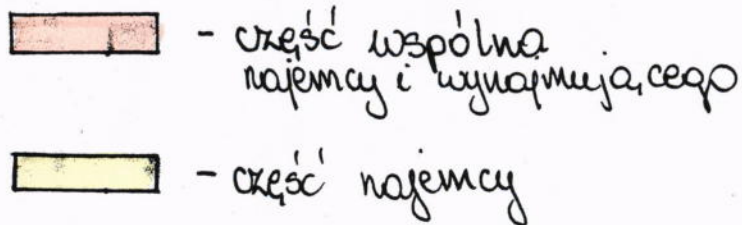 - część wspólna
najemcy i wynajmującego
- część najemcy